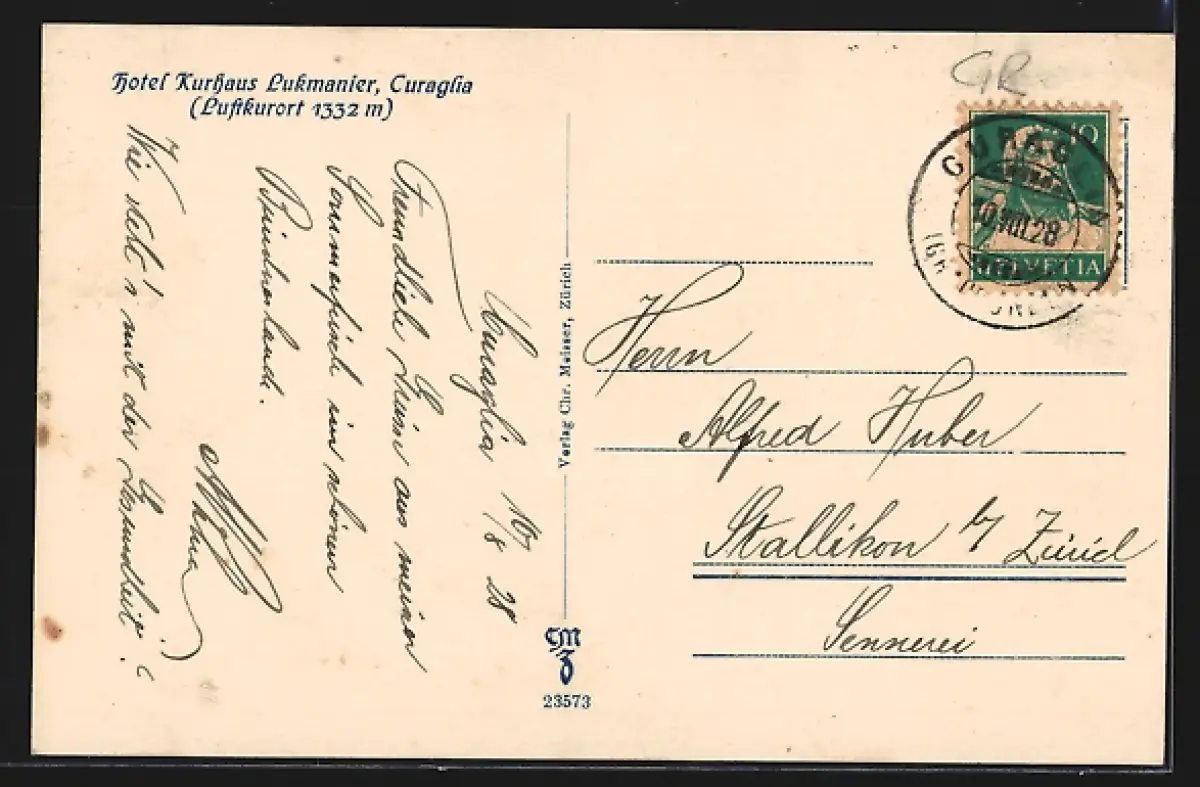 Hotel Kurhaus Lukmanier, Curaglia
(Luftkurort 1332 m)
GR
10
HELVETIA
CURAG
10.VIII.28
Curaglia 10/8 28
Freundliche Grüsse aus meiner
Sommerfrisch im schönen
Bündnerland.
Wie steht's mit der Gesundheit?
Verlag Chr. Meisser, Zürich
CMZ
23573
Herrn
Alfred Huber
Stallikon b/ Zürich
Sennerei